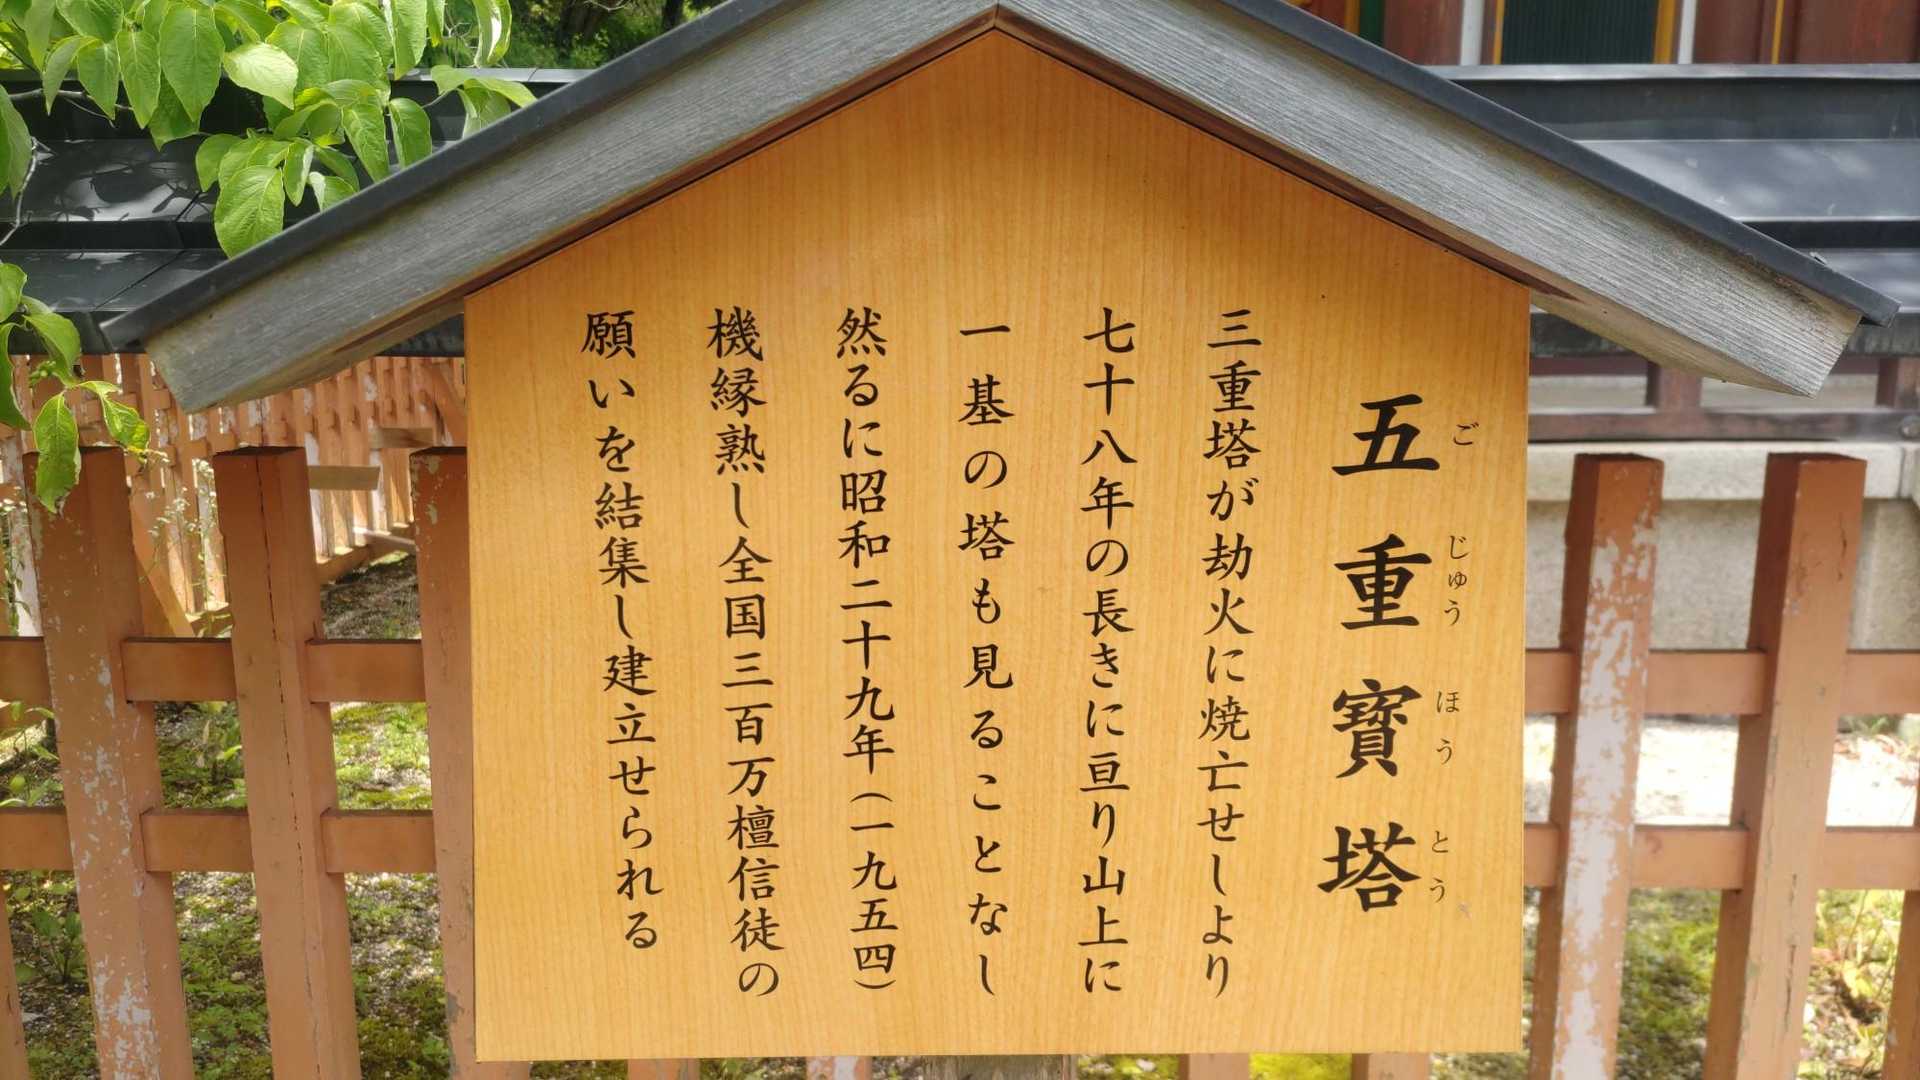 五重寳塔
ご じゅう ほう とう
三重塔が劫火に焼亡せしより
七十八年の長きに亘り山上に
一基の塔も見ることなし
然るに昭和二十九年（一九五四）
機縁熟し全国三百万檀信徒の
願いを結集し建立せられる